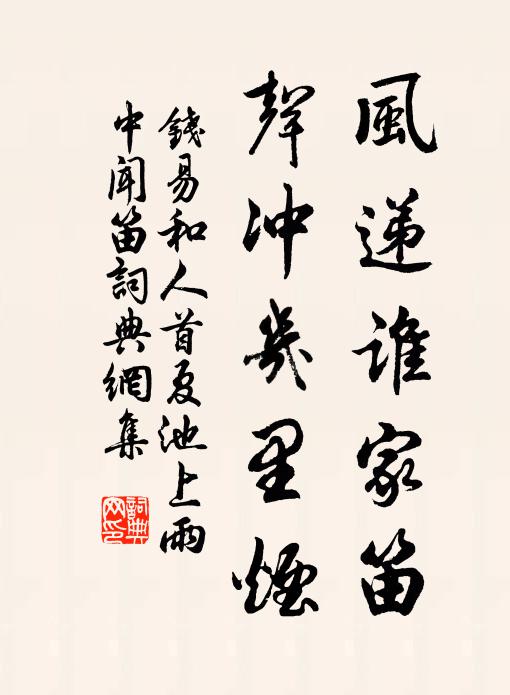 風递谁家笛
聲冲幾里煙
錢易和人首夏池上雨
中闻笛詞典網集
詞典網印